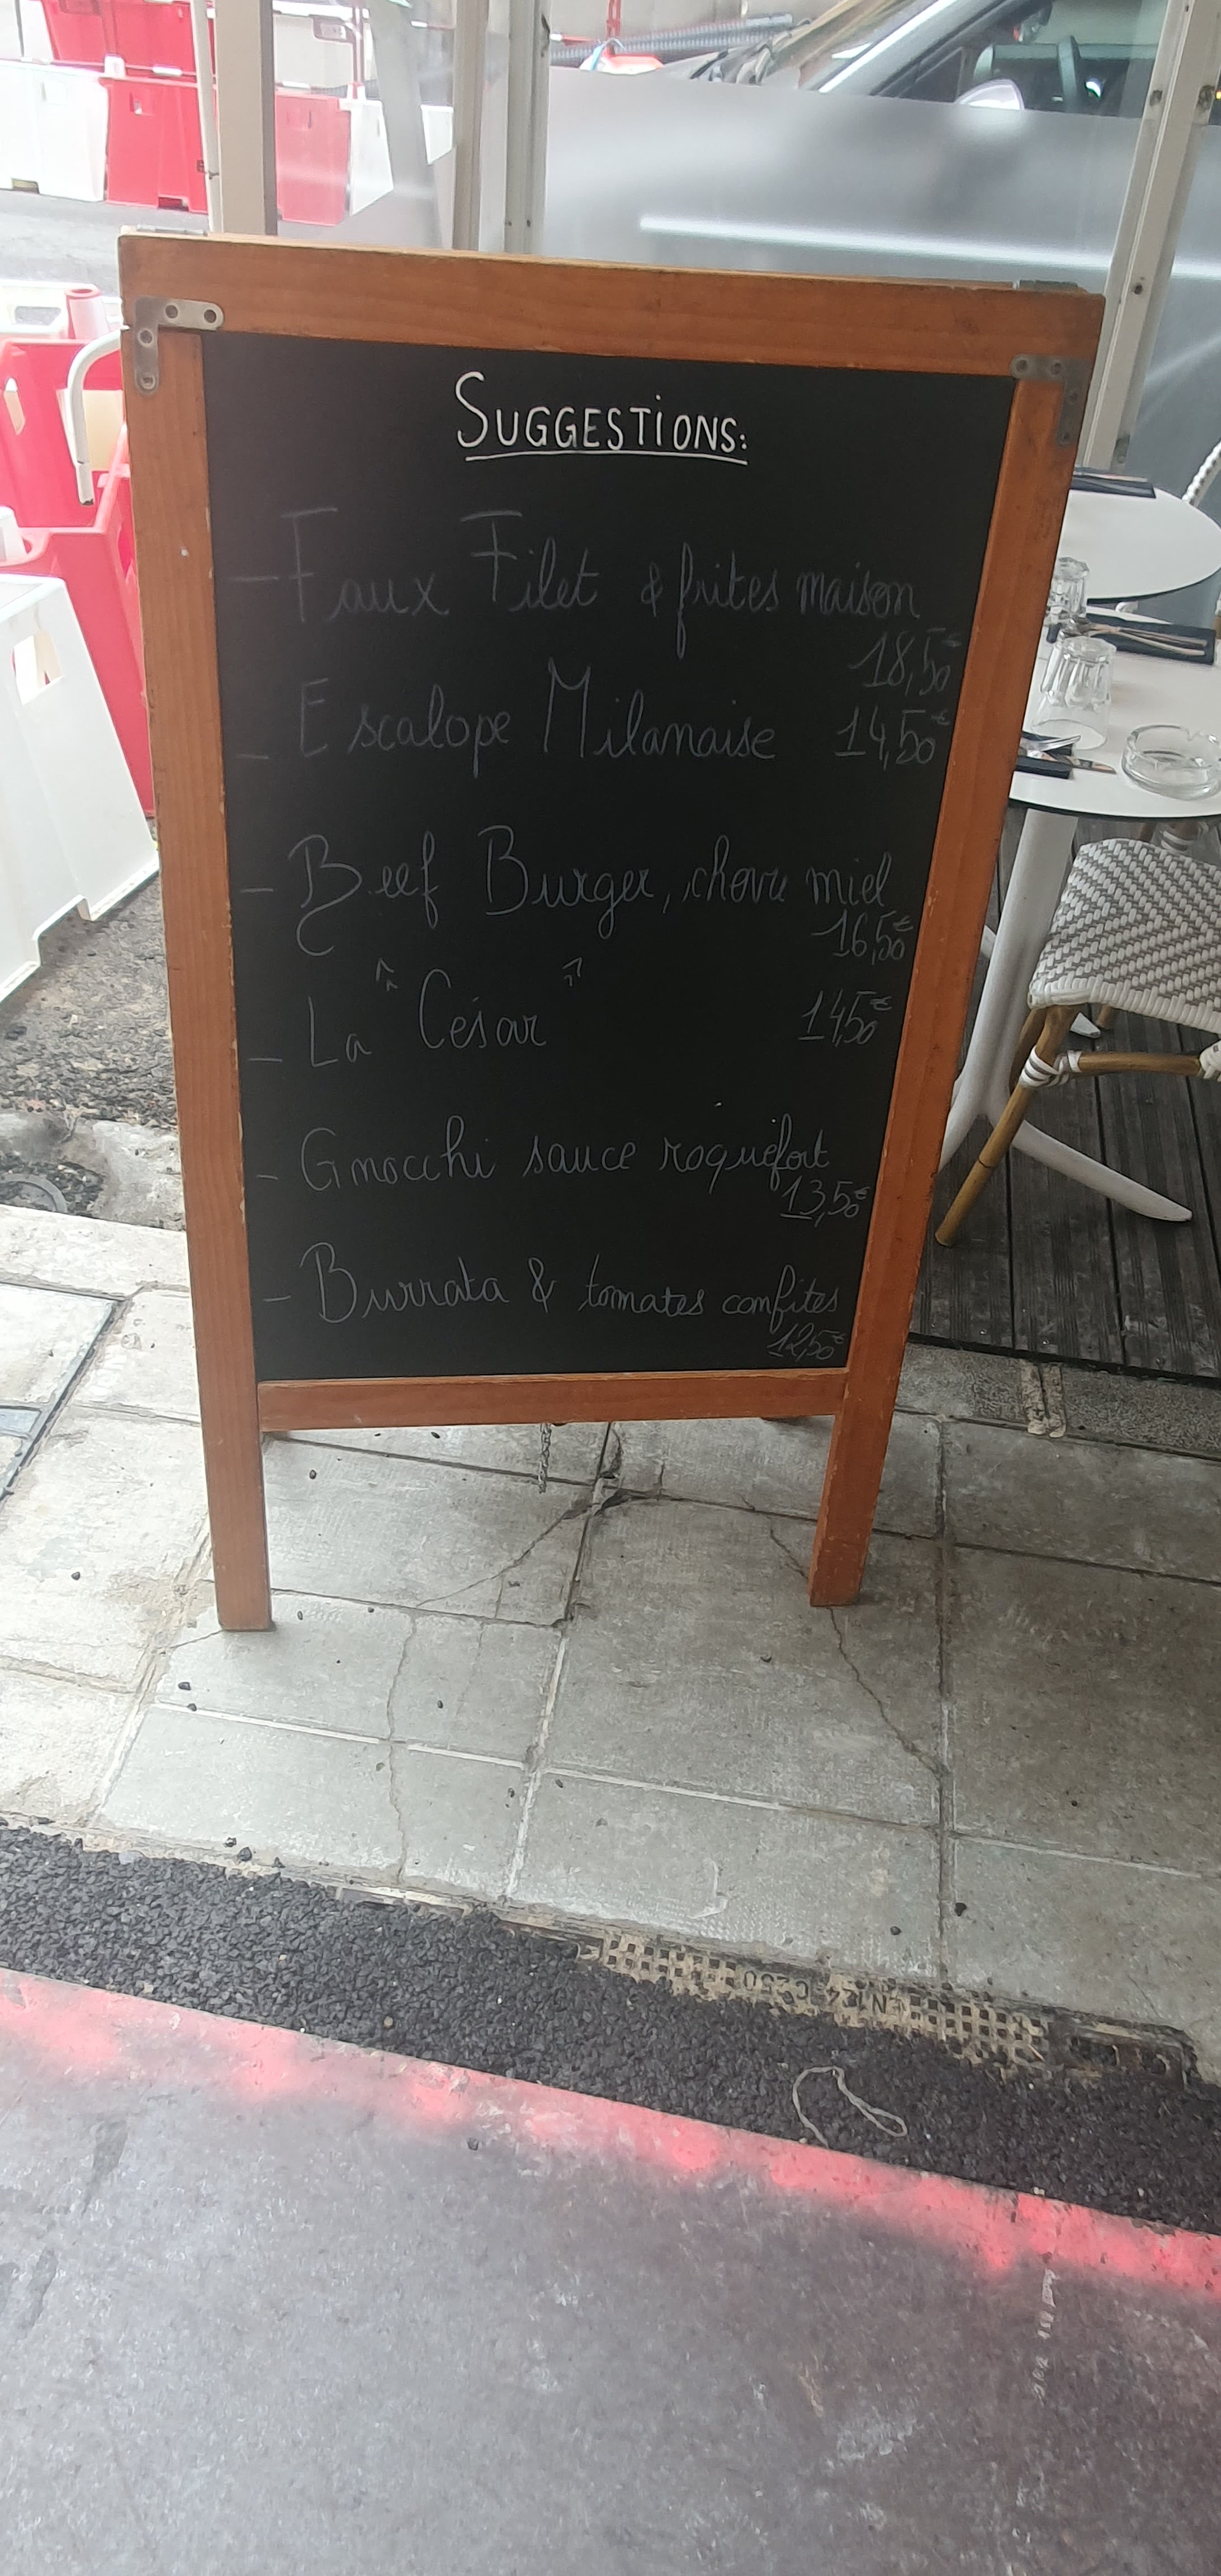 SUGGESTIONS:
- Faux Filet & frites maison
18,50€
- Escalope Milanaise 14,50€
- Beef Burger, chèvre miel
16,50€
- La "César" 14,50€
- Gnocchi sauce roquefort
13,50€
- Burrata & tomates confites
12,50€
EN124
C250